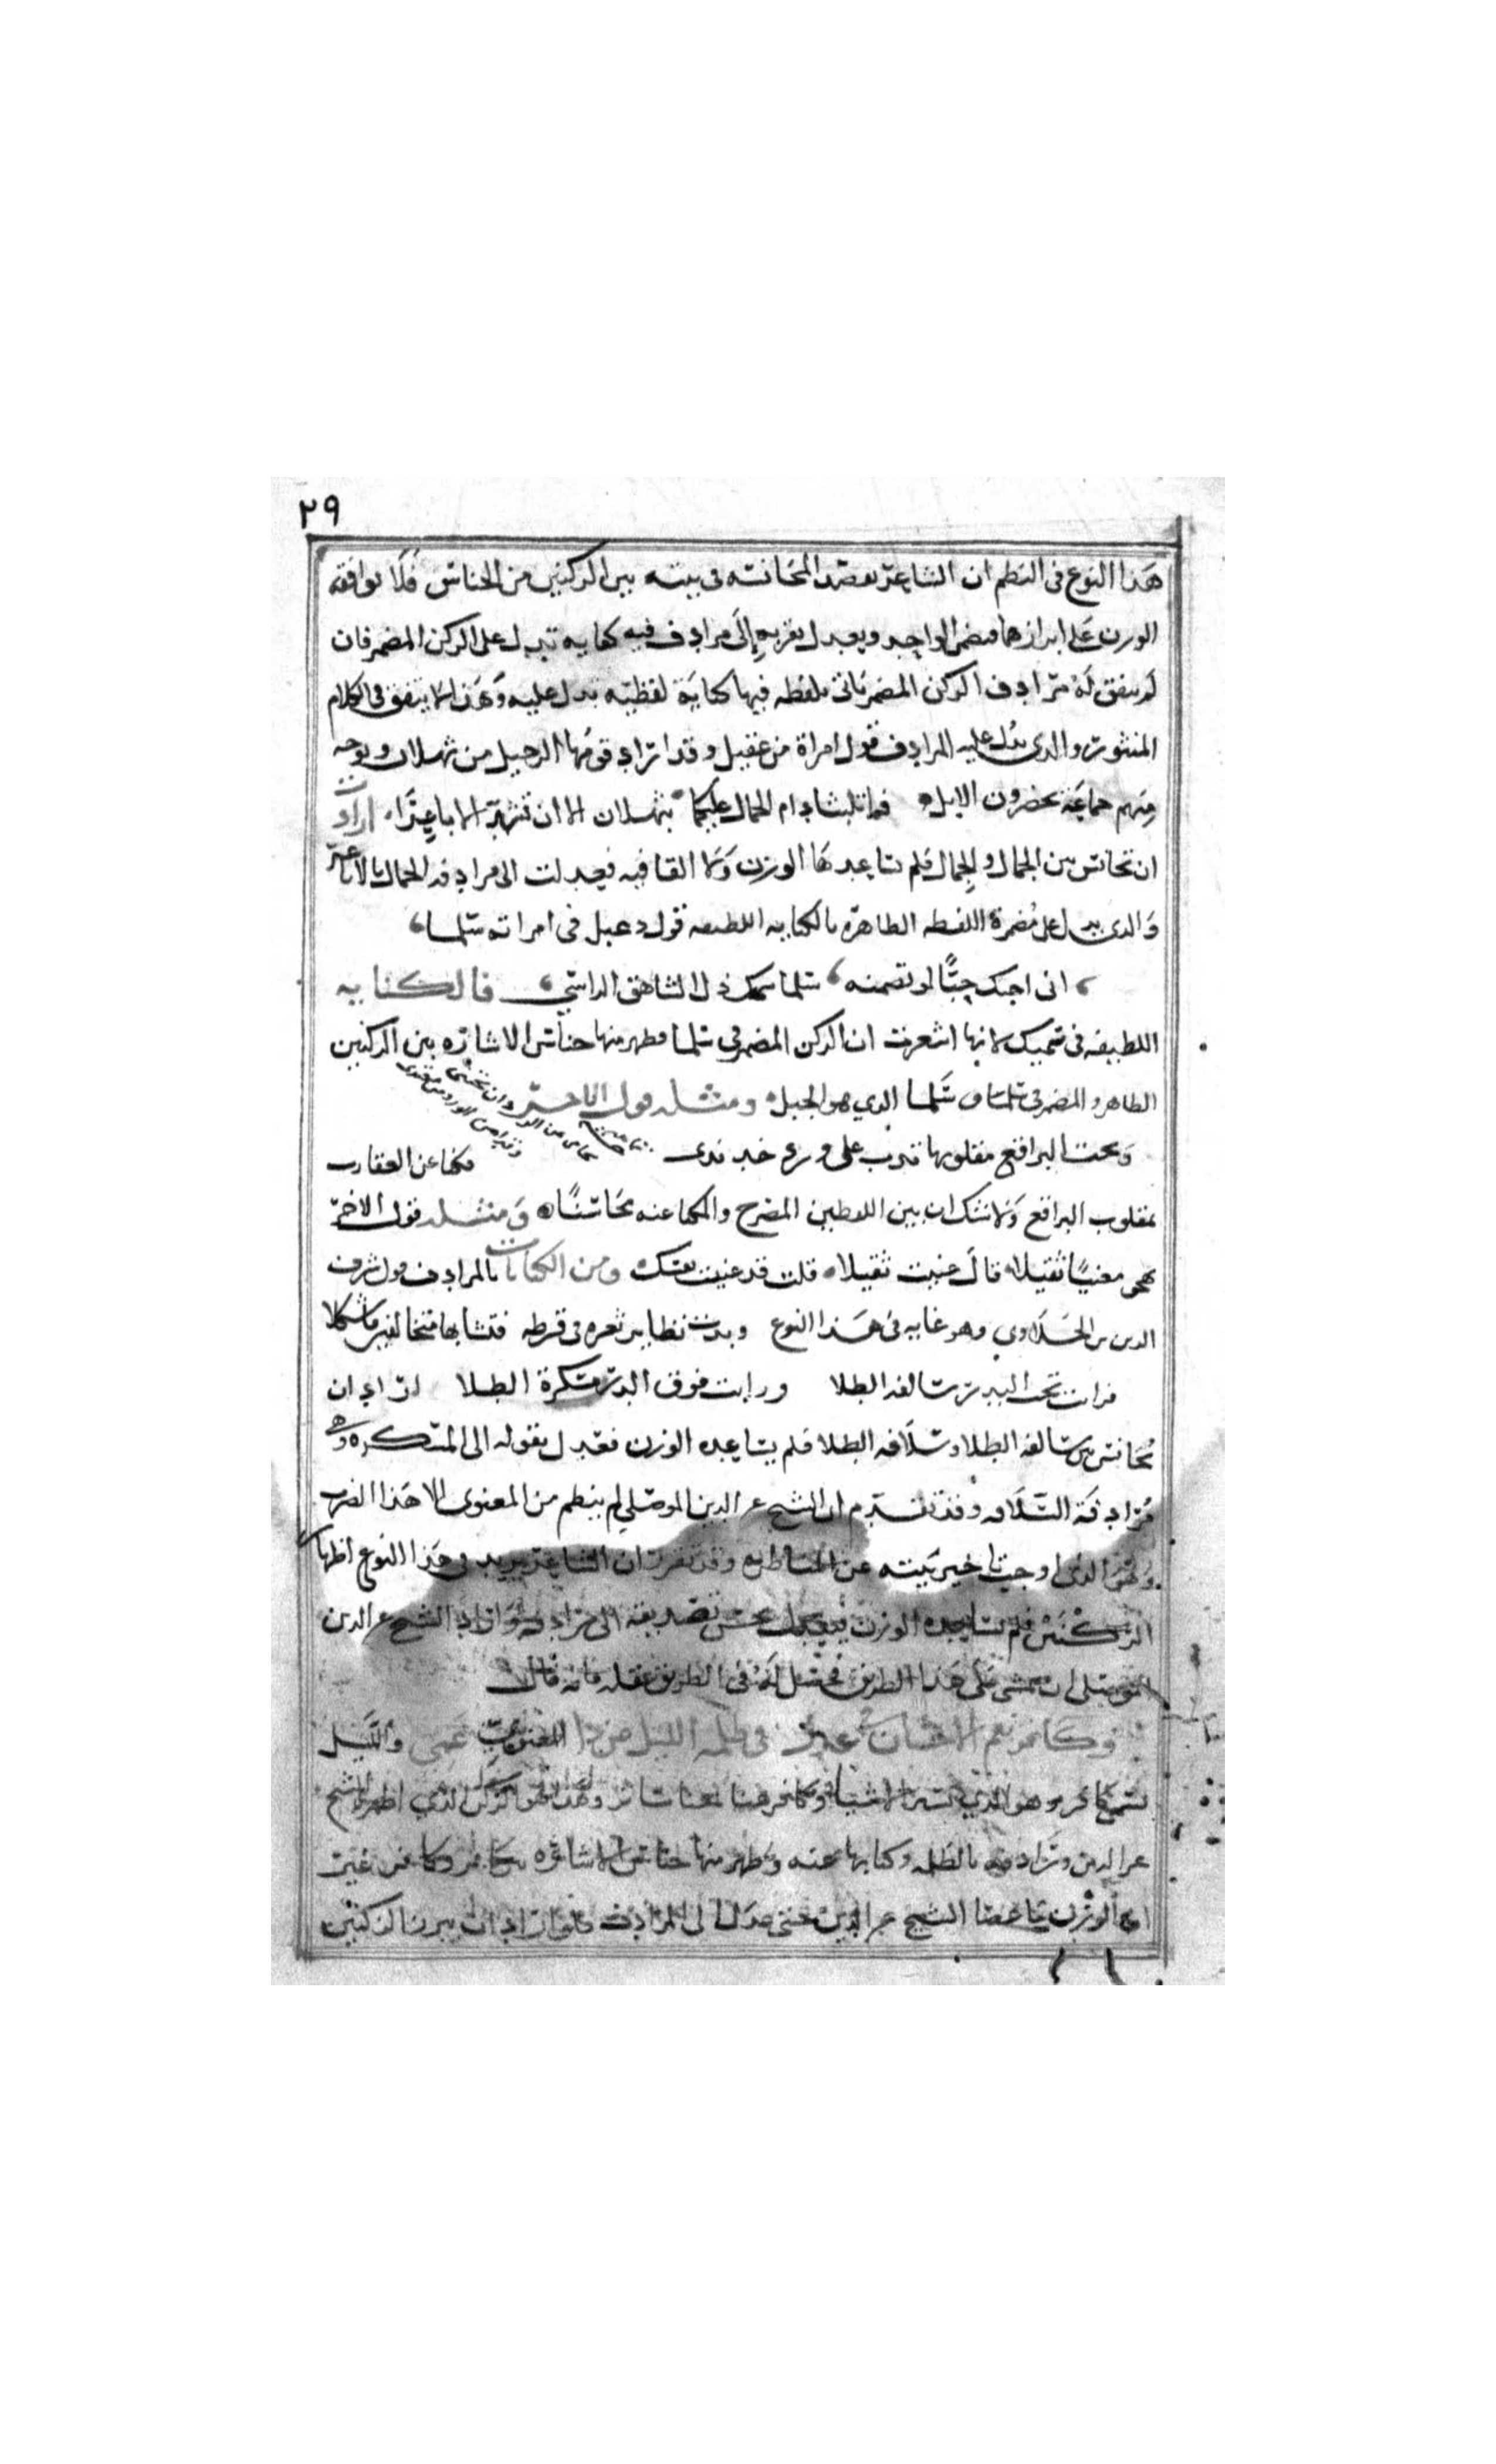 ٢٩
هذا النوع فى النظم ان الشاعر يقصد المجانسه فى بيته بين الركنين من الجناس فلا يوافقه
الوزن على ابرازهما فيضمر الواحد ويعدل بقربه إلى مرادف فيه كنايه تدل على الركن المضمر فان
لم يتفق له مرادف الركن المضمر ياتى بلفظه فيها كناية لفظيه تدل عليه وهذا لا يتفق فى الكلام
المنثور والذى يدل عليه المرادف قول امراة من عقيل وقد اراد قومها الرحيل من ثهلان وتوجه
منهم جماعة يحضرون الابل فما لبثنا دام الجمال عليكما بثهلان الا ان تشد الاباعر ارادت
ان تجانس بين الجمال والجمال فلم يساعدها الوزن ولا القافيه فعدلت الى مرادفه الجمال بالاباعر
والذى يدل على مضمره اللفظه الظاهره بالكنايه اللطيفه قول دعبل فى امراته سلما
انى احبك حبًّا لو تضمنه سلما سميك ذل الشاهق الراسي فالكنايه
اللطيفه فى سميك لانها اشعرت ان الركن المضمر فى سلما فظهر منها جناس الاشاره بين الركنين
الظاهر والمضمر فى سلما و سَلما الذي هو الجبل ومثله قول الاخر
وتحت البراقع مقلوبها تدب على ورد خد ندى فكنا عن العقارب
بمقلوب البراقع ولا شك ان بين اللفظين المصرح والمكنا عنه تجانسًا ومثله قول الاخر
يهجو مغنيًا ثقيلا قال غنيت ثقيلا قلت قد غنيت نفسك ومن الكنايات بالمرادف قول شرف
الدين بن الحلاوي وهو غايه فى هذا النوع وبدت نظاير ثغره فى قرطه فتشابها متخالفين فاشكلا
فرات تحت البدر سالفه الطلا ورايت فوق الدر مسكرة الطلا اراد ان
يجانس بين سالفه الطلا وسلافه الطلا فلم يساعده الوزن فعدل بقوله الى المسكره وهى
مرادفة السلافه وقد تقدم ان الشيخ عز الدين الموصلي لم ينظم من المعنوى الا هذا الضرب
وهو الذى اوجب تاخير بيته عن المناظره وقد تقرر ان الشاعر يريد فى هذا النوع اظهار
الركنين فلم يساعده الوزن فيعدل بحسن تصريفه الى مرادفه واراد الشيخ عز الدين
الموصلى ان يمشى على هذا الطريق فحصل له فى الطريق عقله فانه قال
وكافر نعم الاحسان فى عذل فى ظلمه الليل عن ذا المعنوى عمى والليل
يسمى كافر وهو الذي يستر الاشيا وكافر هنا معنا ساتر وهذا هو الركن الذي اظهره الشيخ
عز الدين ورادفه بالظلمه وكنا بها عنه وظهر منها جناس الاشاره بين كافر وكافر غير
ان الوزن ما عصا الشيخ عز الدين حتى عدل الى المرادف فلو اراد ان يبرز الركنين